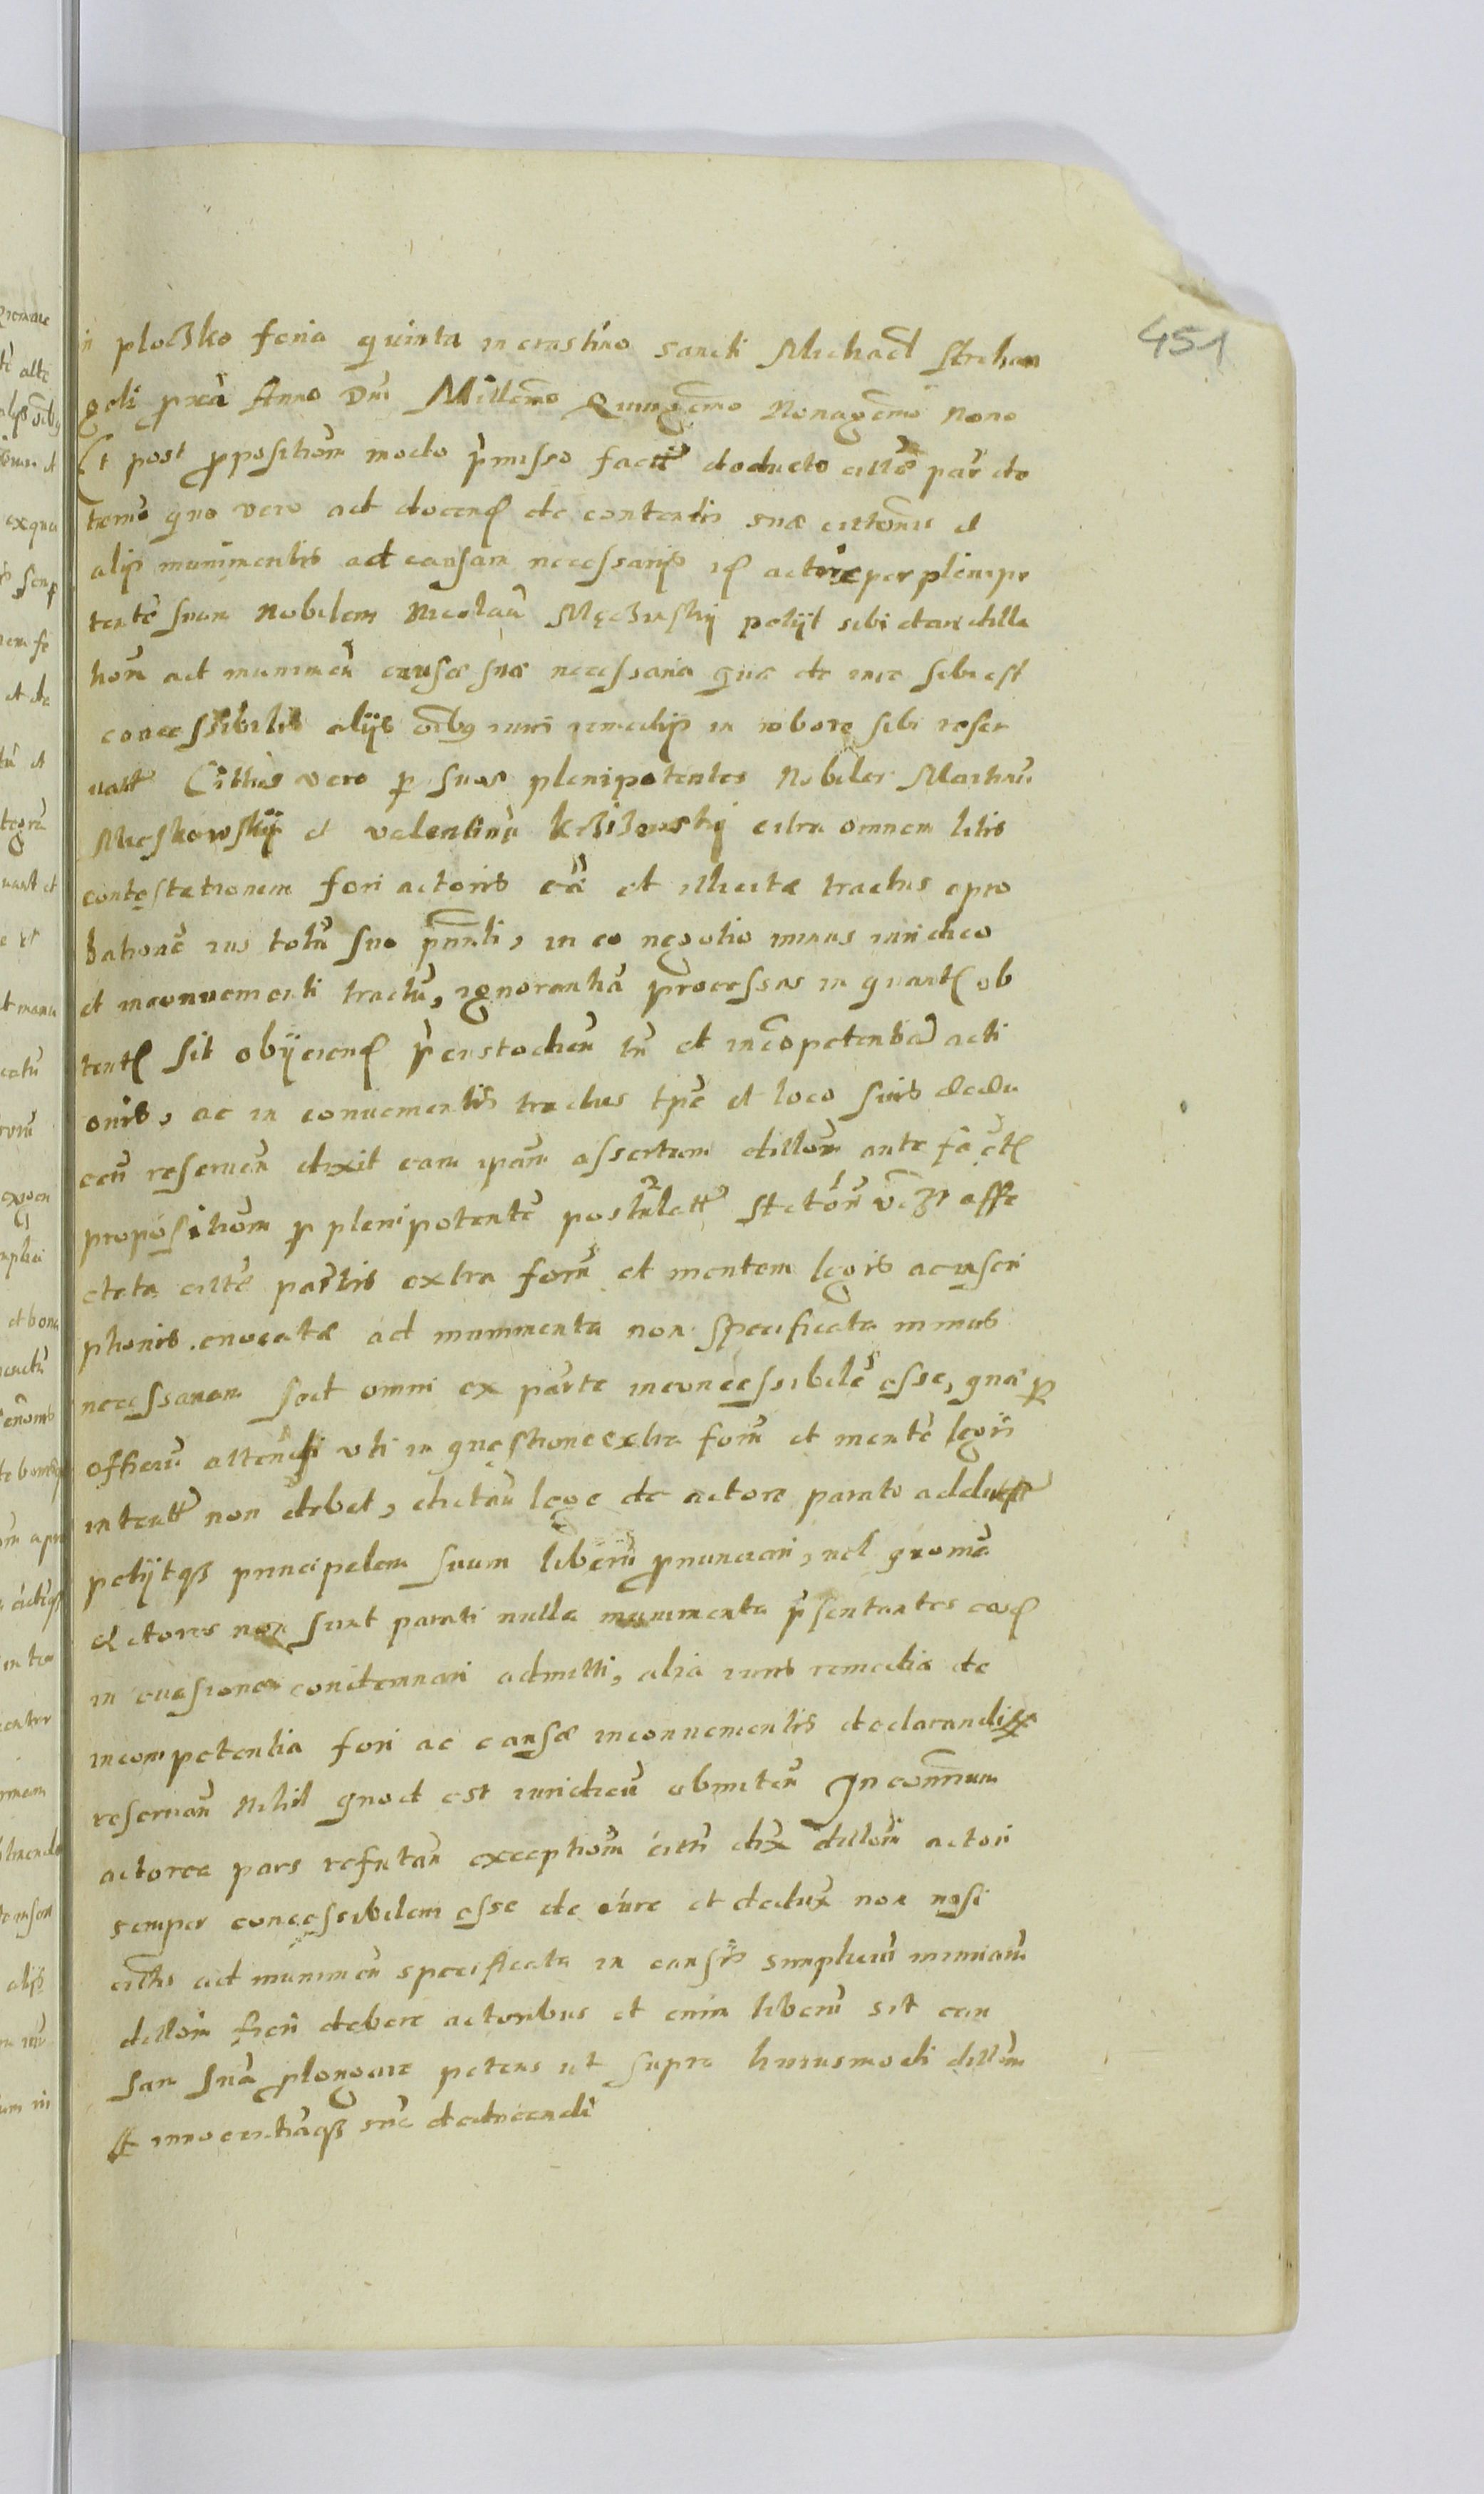 451
in ploczko feria quinta in crastino sancti Michael Archan
geli pxa Anno Dni Millemo Quingemo Nonagemo nono
Et post propositiom modo pmisso factu deducto citte par de
termo quo vero ad docend de contentis suae citonis et
alijs munimentis ad causam necessarijs id actor per plenipo
tente suum Nobilem Nicolau petijt sibi dari dilla
tiom ad munimen causae suae necessaria quae de iure sibi est
concessibilis alijs oibus iuris remedijs in robore sibi reser
uatt Cittus vero p suos plenipotentes Nobiles Martinu
Mieskowskij et valentinu citra omnem litis
contestationem fori actoris ca et illicitae tractus apro
batione ius totu suo pnnti, in eo negotio minus iuridico
et inconuenienti tractu, ignorantia processus in quantu ob
tentu sit obijciend et incopetentia acti
onis, ac in conuenientis tractus tpe et loco suis dedu
cen reseruen dixit eam ipam assertam dillom ante factu
propositiom p plenipotente postulatt affe
ctata citte partis extra form et mentem legis ac
ptionis euocatae ad munimenta non specificata minus
necessariam sed omni ex parte inconcessibile esse, quae p
officiu attendi vti in questione extra form et mente legis
intentt non debet, dictan lege de actore parato
petijtqz principalem suum liberu pnunciari, vel quoniam
actores non sunt parati nulla munimenta psentantes eosd
in euasione condemnari admitti, alia iuris remedia de
incompetentia fori ac causae inconuenientis declarandi
reseruan Nihil quod est iuridicu obmitten In contrarium
actorea pars refutan exceptiom citti dix dillom actori
semper concessibilem esse de iure et dedux non nisi
citti ad munimen specificata in causis simplicium iniuriaru
dillom fieri debere actoribus et enim liberu sit cau
sam sua plongare petens ut supra huiusmodi dillom
innocentiaqz sue deducendi